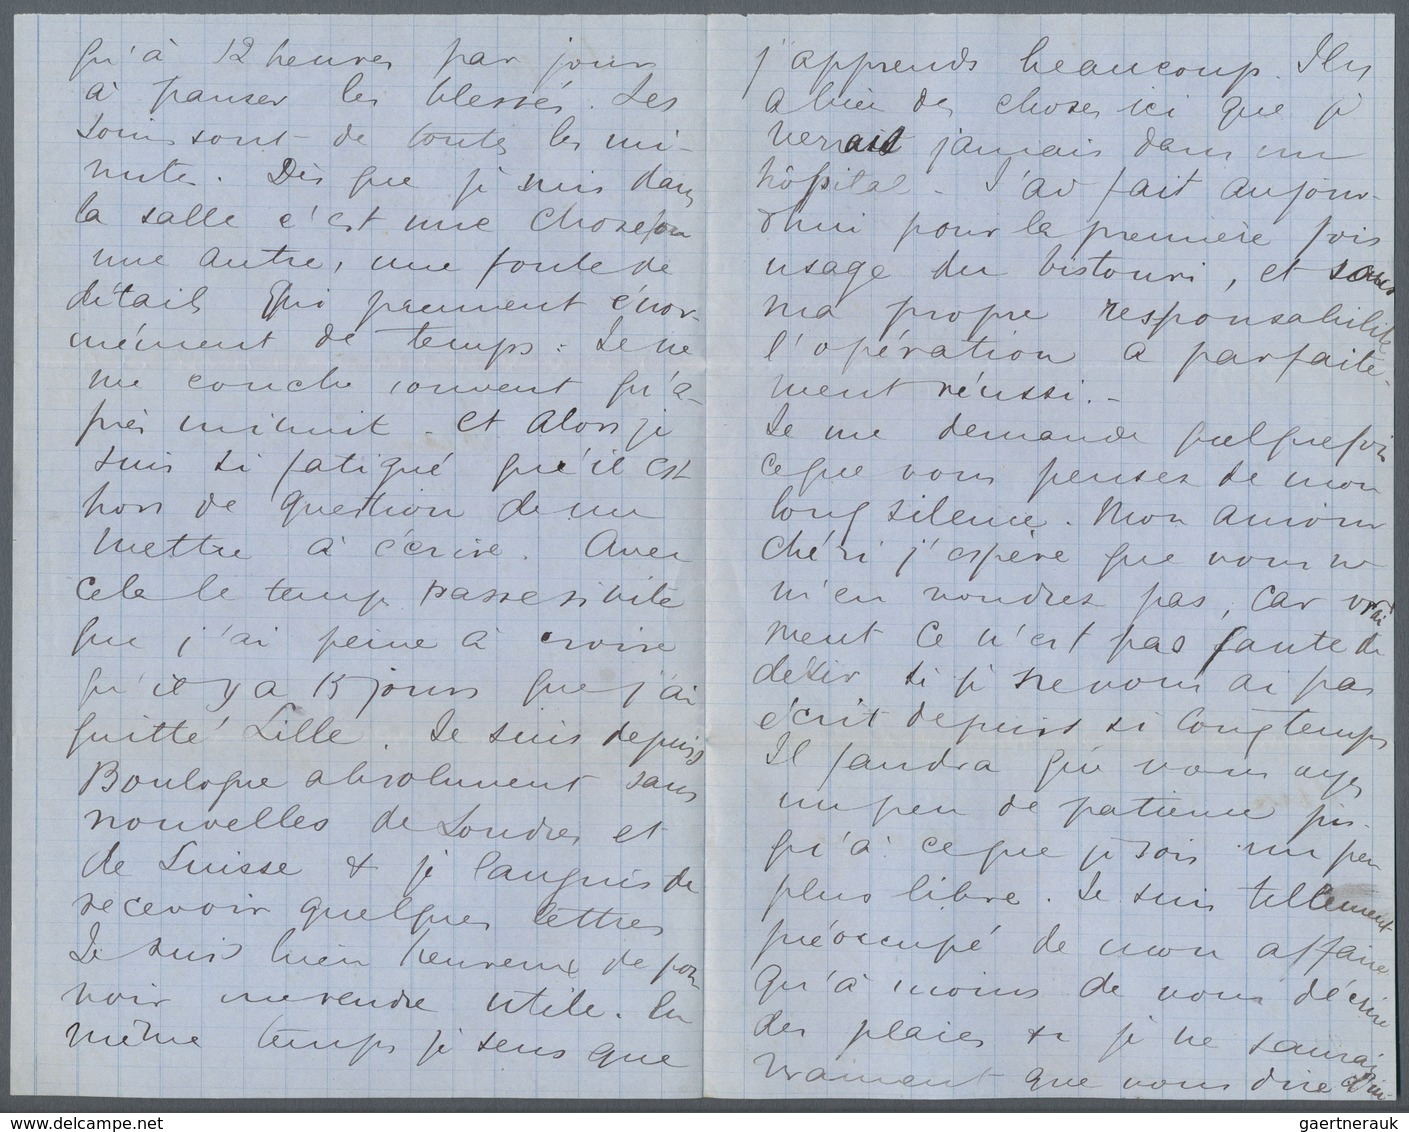 qu'à 12 heures par jours
à panser les blessés. Les
soins sont de toutes les mi-
nutes. Dès que je suis dans
la salle c'est une chose pour
une autre, une foule de
détails qui prennent énor-
mément de temps : Je ne
me couche souvent qu'a-
près minuit - et alors je
suis si fatigué qu'il est
hors de question de me
mettre à écrire. Avec
cela le temps passe si vite
que j'ai peine à croire
qu'il y a 15 jours que j'ai
quitté Lille. Je suis depuis
Boulogne absolument sans
nouvelles de Londres et
de Suisse & je languis de
recevoir quelques lettres
Je suis bien heureux de pou
voir me rendre utile. En
même temps je sens que
j'apprends beaucoup. Il y
a bien des choses ici que je
verrais jamais dans un
hôpital - J'ai fait aujour-
d'hui pour la première fois
usage du bistouri, et sous
ma propre responsabilité
l'opération a parfaite-
ment réussi. -
Je me demande quelquefois
ce que vous pensez de mon
long silence. Mon amour
chéri j'espère que vous ne
m'en voudrez pas, car vrai
ment ce n'est pas faute de
désir si je ne vous ai pas
écrit depuis si longtemps
Il faudra que vous ayez
un peu de patience jus-
qu'à ce que je sois un peu
plus libre. Je suis tellement
préoccupé de mon affaire
qu'à moins de vous décrire
des plaies & je ne saurais
vraiment que vous dire d'in-
gaertnerauk